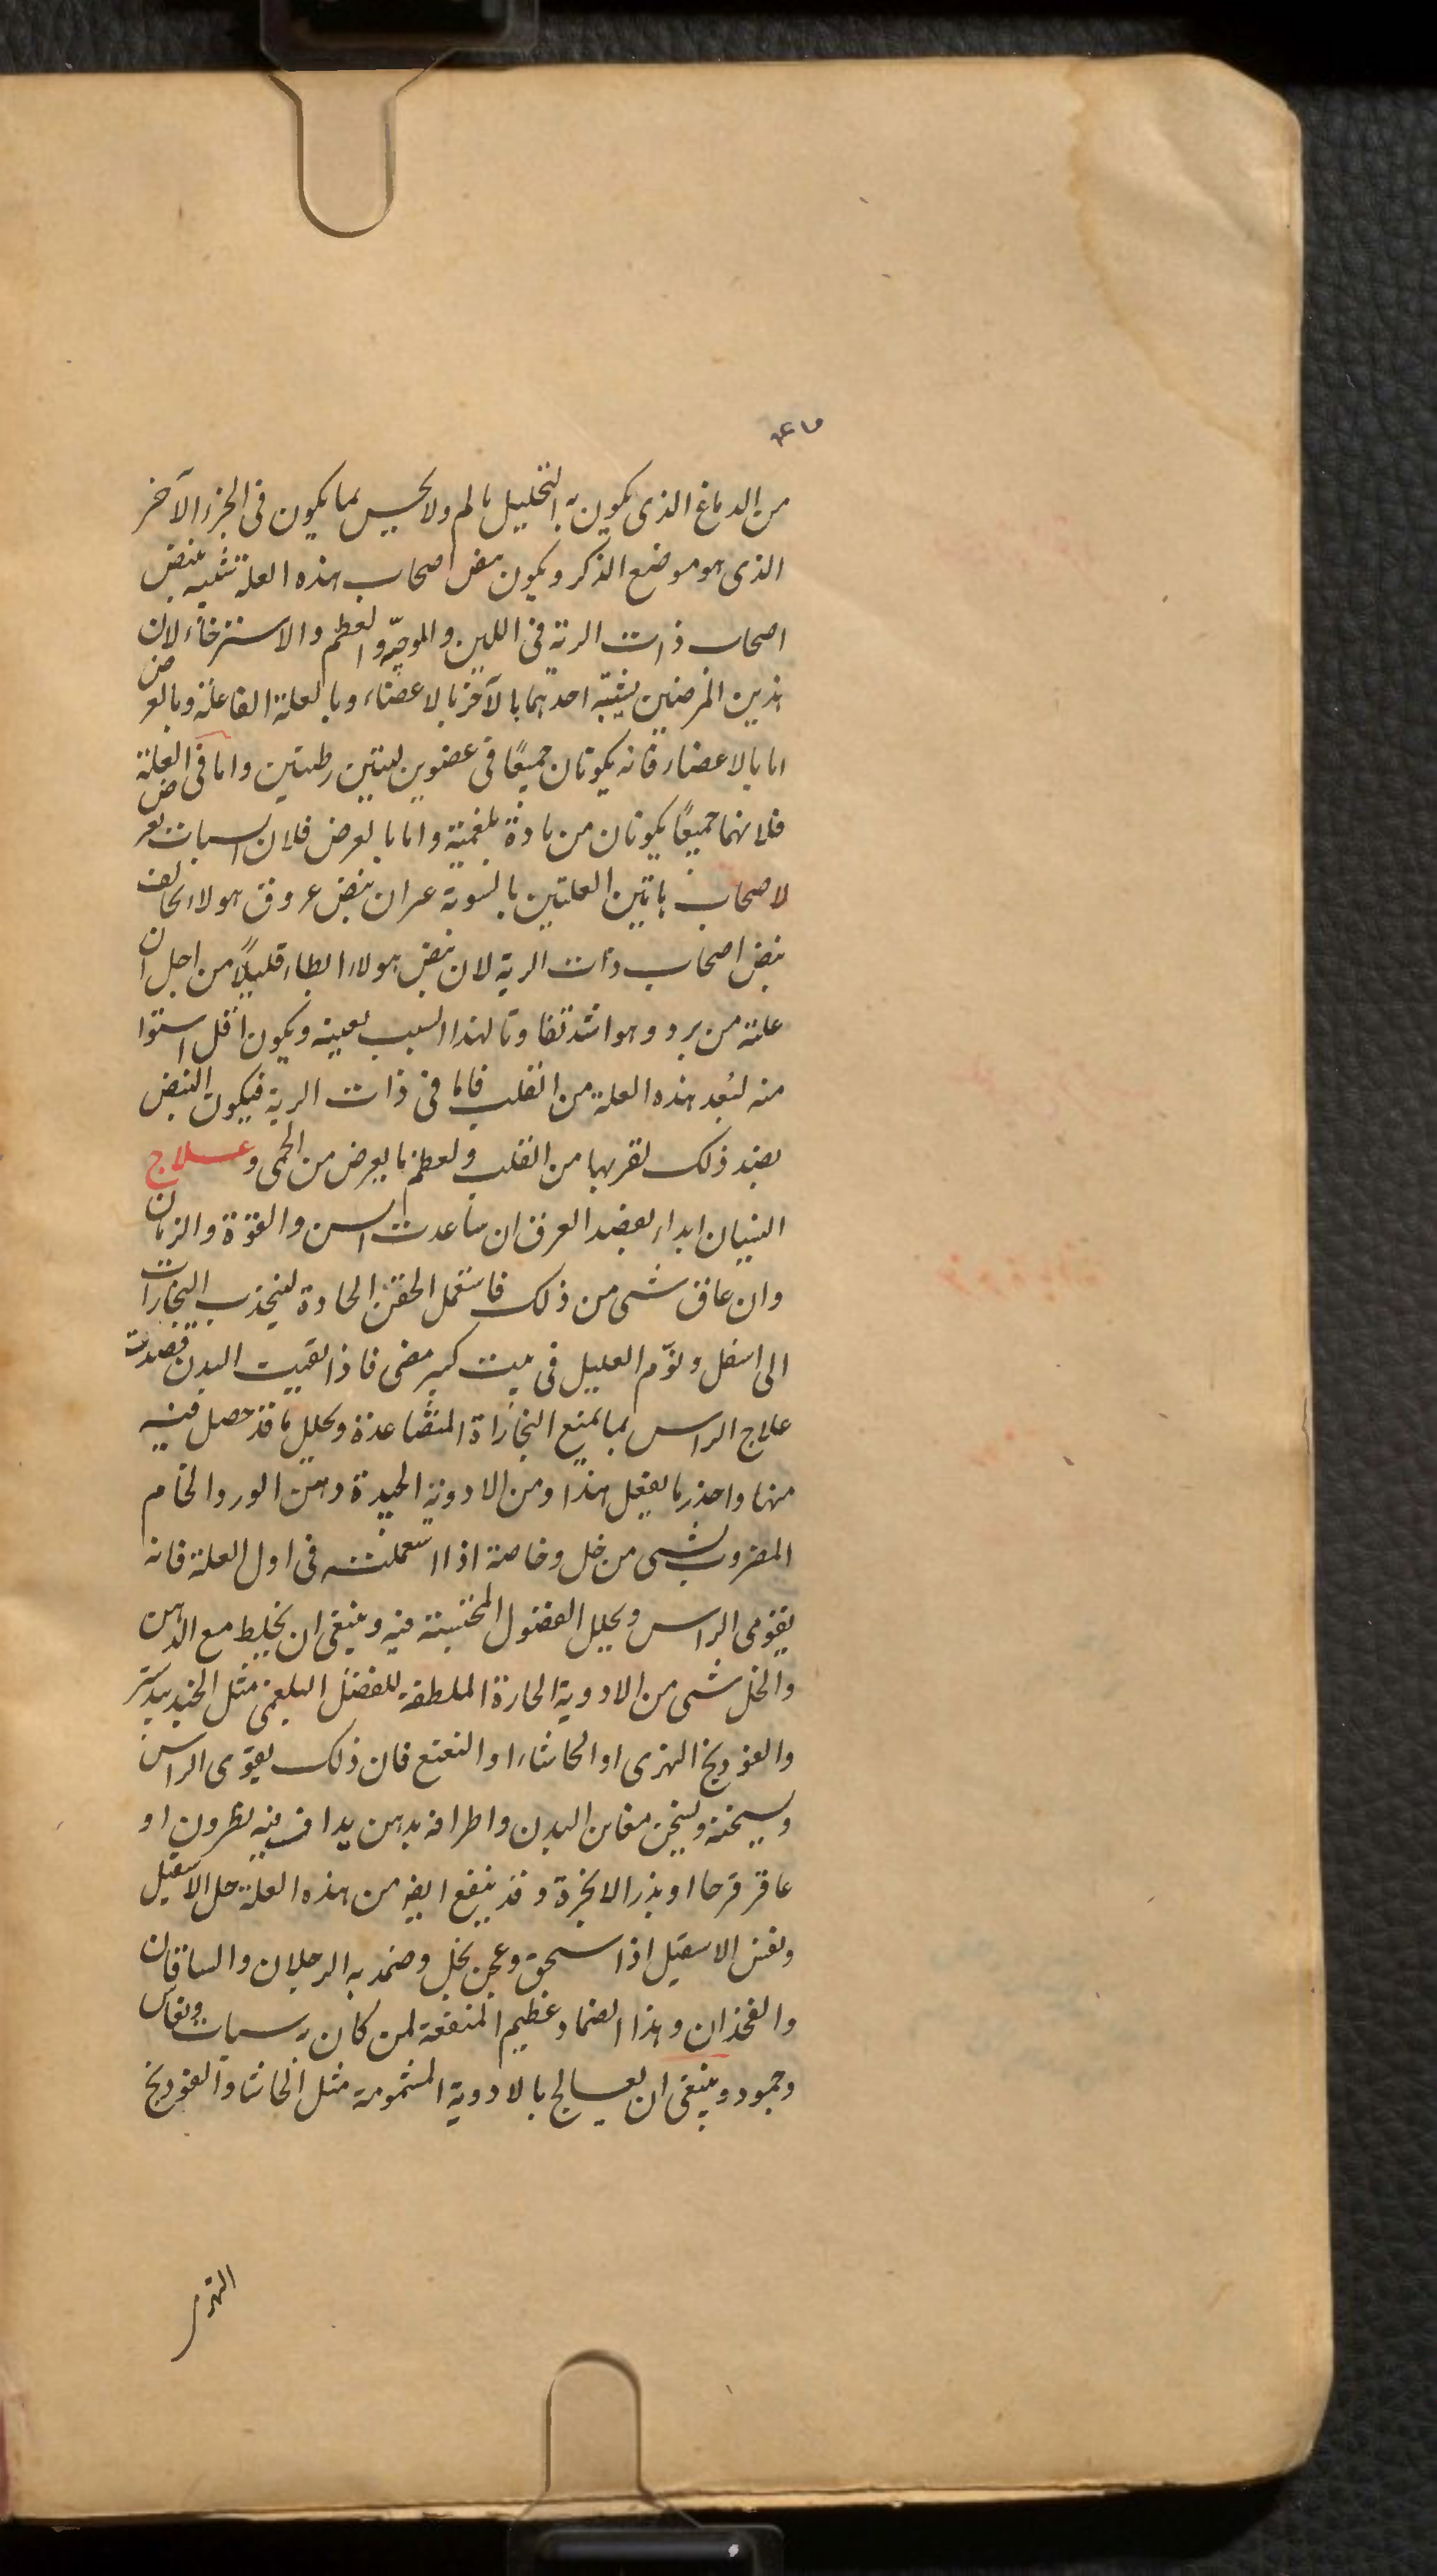 من الدماغ الذى يكون به التخليل يالم ولا يحس بما يكون فى الجزء الآخر
الذى هو موضع الذكر ويكون نبض اصحاب هذه العلة شبيه بنبض
اصحاب ذات الرية فى اللين والموجيّة والعظم والاسترخاء لان
هذين المرضين يشبه احدهما بالآخر بالاعضاء وبالعلة الفاعلة وبالعرض
اما بالاعضاء فانه يكونان جميعًا فى عضوين لينين رطبين واما فى العلة
فلانهما جميعًا يكونان من مادة بلغمية واما بالعرض فلان السبات يعرض
لاصحاب هاتين العلتين بالسوية غير ان نبض عروق هولاء يخالف
نبض اصحاب ذات الرية لان نبض هولاء ابطاء قليلًا من اجل ان
علته من برد وهو اشد تفاوتا لهذا السبب بعينه ويكون اقل استوا
منه لبُعد هذه العلة من القلب فاما فى ذات الرية فيكون النبض
بضد ذلك لقربها من القلب ولعظم ما يعرض من الحمى وعلاج
النسيان ابداء بفصد العرق ان ساعدت السن والقوة والزمان
وان عاق شى من ذلك فاستعمل الحقن الحادة لينجذب البخارات
الى اسفل ونوّم العليل فى بيت كبير مضى فاذا نقيت البدن قصدت
علاج الراس بما يمنع البخاراة المتصاعدة ويحلل ما قد حصل فيه
منها واحذر ما يفعل هذا ومن الادوية الجيدة دهن الورد الخام
المضروب بشى من خل وخاصة اذا استعملته فى اول العلة فانه
يقوى الراس ويحلل الفضول المحتبسة فيه وينبغى ان يخلط مع الدهن
والخل شى من الادوية الحارة الملطفة للفضل البلغمى مثل الجندبيدستر
والفودنج النهرى او الحاشاء او النعنع فان ذلك يقوى الراس
ويسخنه ويسخن مغابن البدن واطرافه بدهن يداف فيه نطرون او
عاقرقرحا او بذر الانجرة وقد ينفع ايضا من هذه العلة خل الاسقيل
ونفس الاسقيل اذا سحق وعجن بخل وضمد به الرجلان والساقان
والفخذان وهذا الضماد عظيم المنفعة لمن كان به سبات ونعاس
وجمود وينبغى ان يعالج بالادوية المشمومة مثل الحاشا والفودنج
النهرى